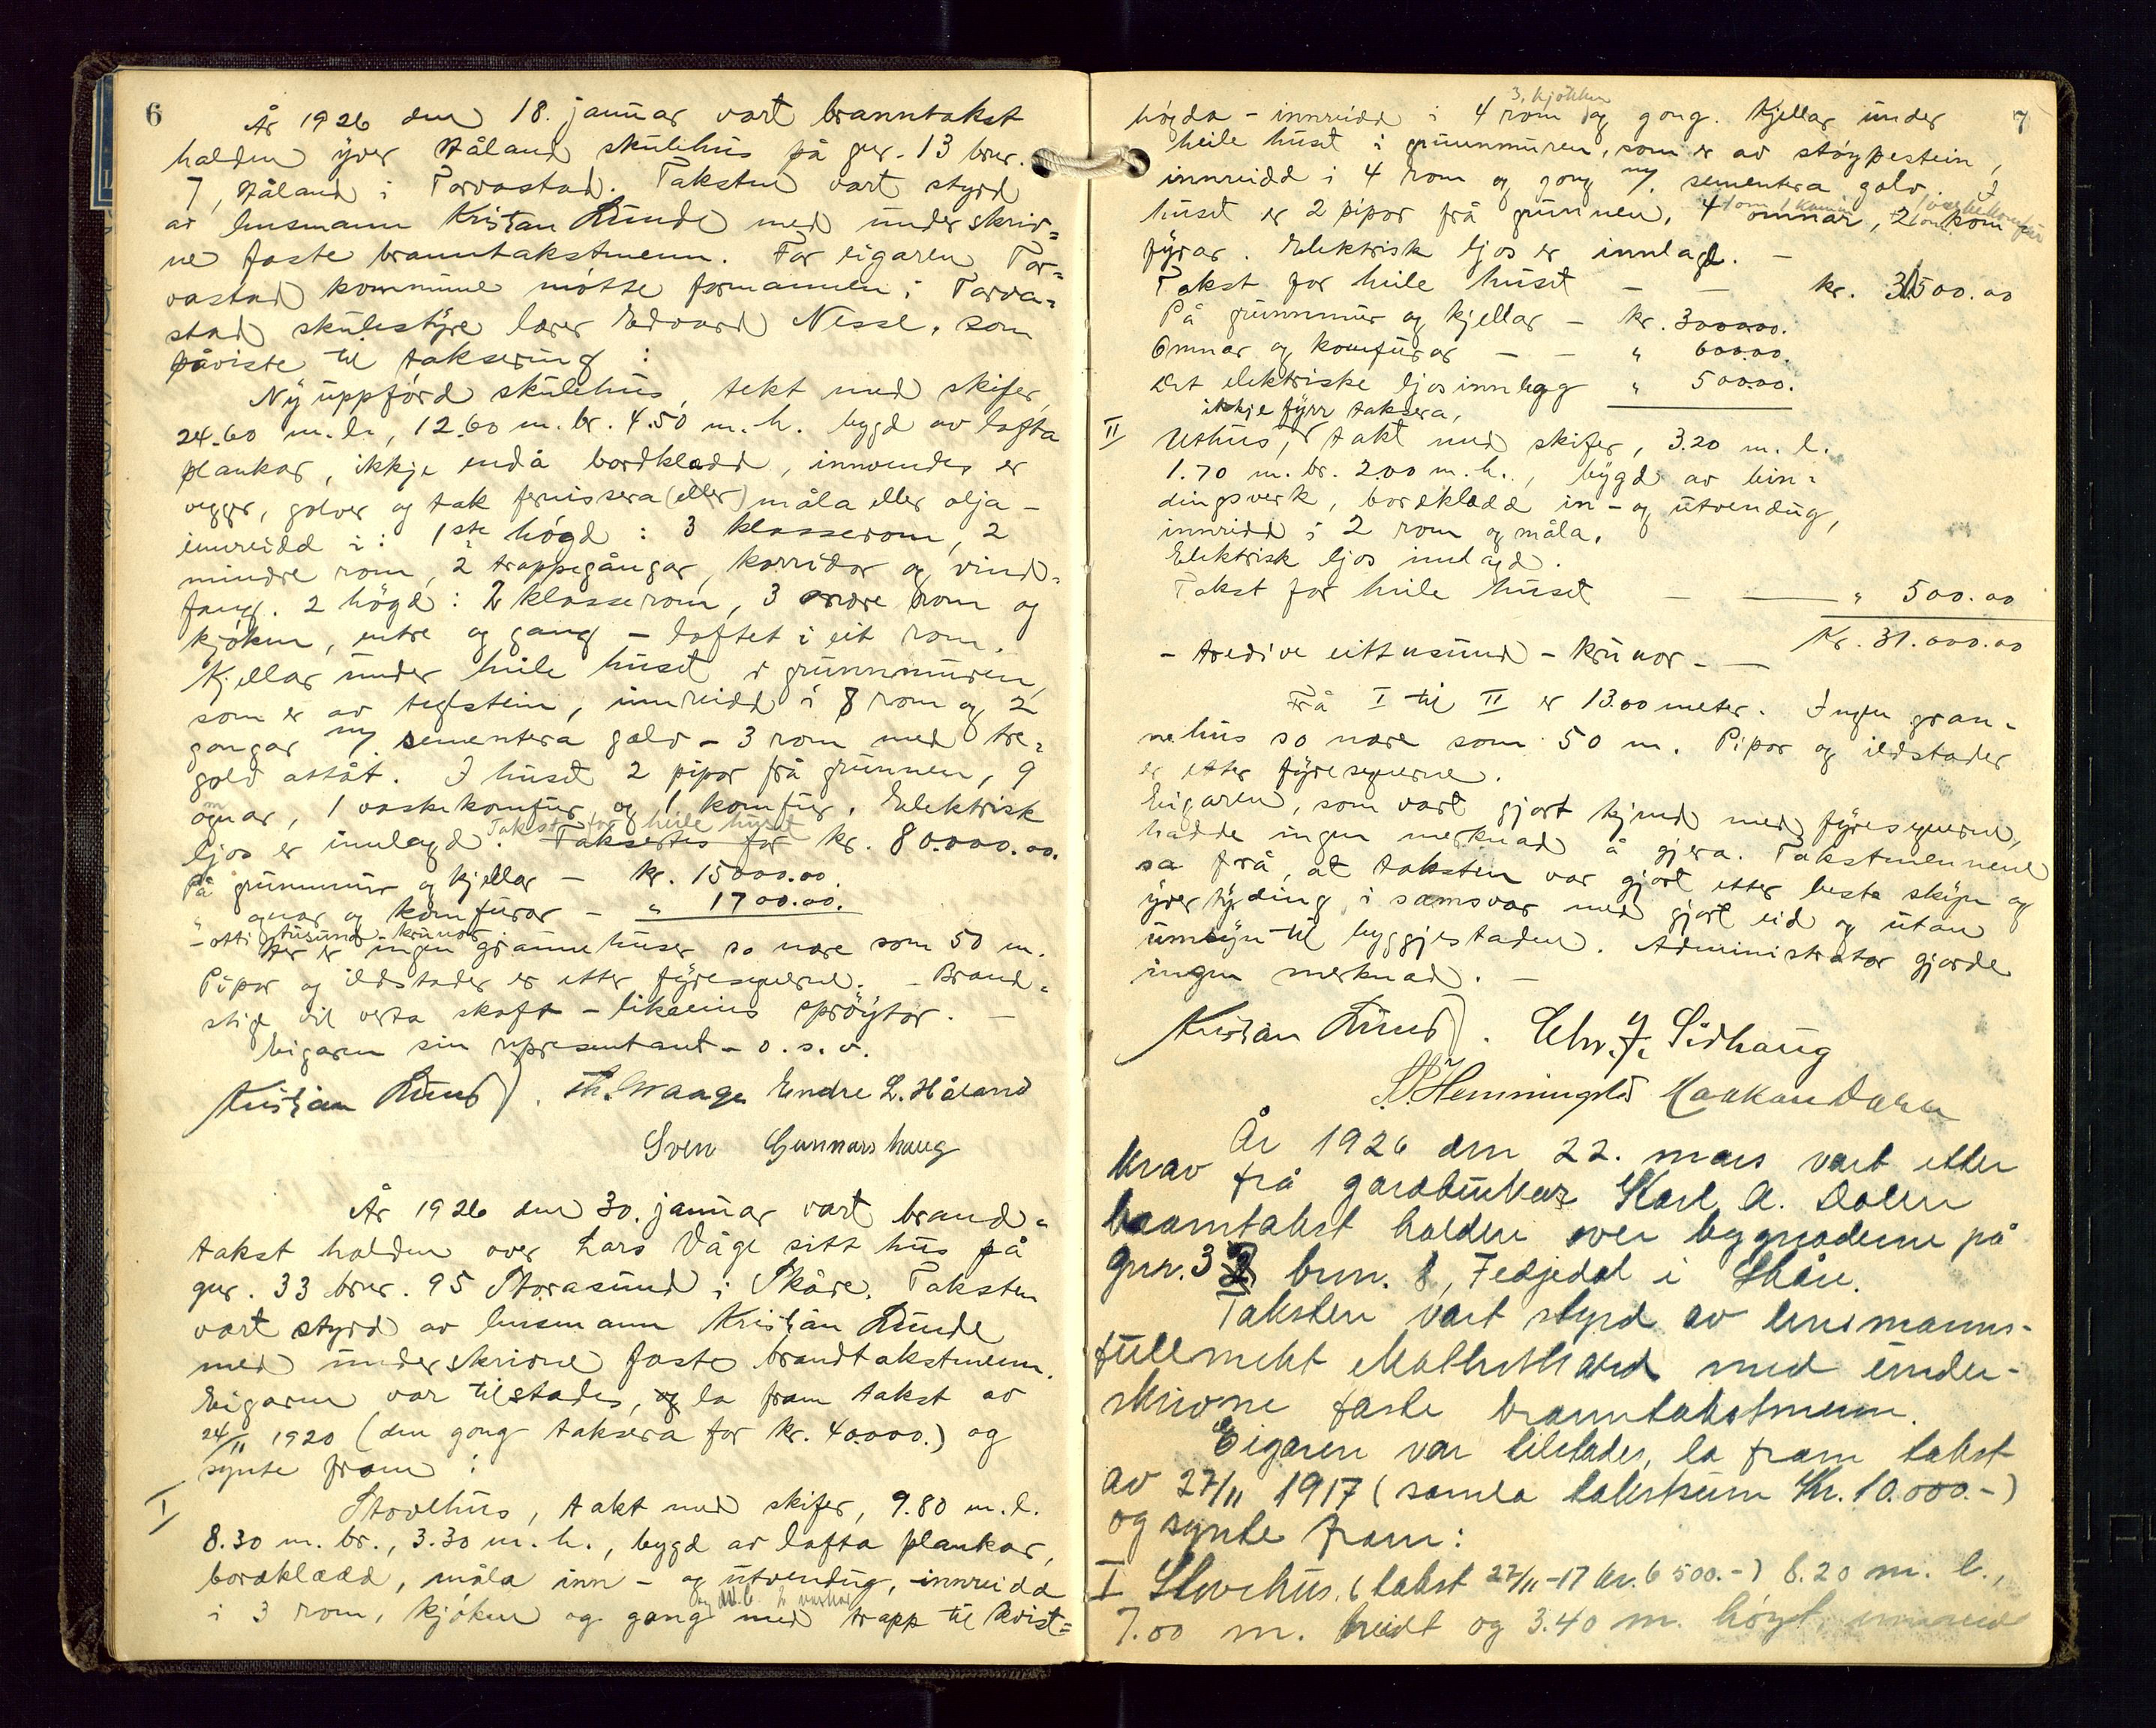 6
År 1926 den 18. januar vart branntakst
halden yver Håland skulehus på gnr. 13 bnr.
7, Håland i Torvastad. Taksten vart styrd
av lensmann Kristian Lunde med underskriv=
ne faste branntakstmenn. For eigaren Tor=
vastad kommune møtte formannen i Torva=
stad skulestyre lærar Edvard Nesse, som
påviste til taksering:
Ny uppførd skulehus, tekt med skifer,
24.60 m. l., 12.60 m. br. 4.50 m. h. bygd av lafta
plankar, ikkje endå bordklædd, innvendes er
vegger, golver og tak fernissera (eller) måla eller olja -
innreidd i: 1ste høgd: 3 klasserom, 2
mindre rom, 2 trappegångar, korridor og vind=
fang. 2 høgd: 2 klasserom, 3 andre rom og
kjøken, entre og gang - loftet i eit rom.
Kjellar under heile huset i grunnmuren,
som er av teglstein, innreidd i 8 rom og 2
gongar m/ sementera golv - 3 rom med tre=
golv attåt. I huset 2 pipor frå grunnen, 9
omnar, 1 vaskekomfur og 1 komfur. Elektrisk
ljos er innlagd. Takst for heile huset Taksertes for kr. 80.000.00.
På grunnmur og kjellar - kr. 15000.00.
" ognar og komfurar - " 1700.00.
- otti tusund - krunor
Her er ingen grannehuser so nære som 50 m.
Pipor og ildstader er etter fyresegnerne. - Brand=
stige vil verta skaft - likeeins sprøytor. -
Eigaren sin representant - o. s. v.
Kristian Lunde. Th. Waage Endre L. Håland
Sven Gunnarshaug
År 1926 den 30. januar vart brand=
takst halden over Lars Våge sitt hus på
gnr. 33 bnr. 95 Storasund i Skåre. Taksten
vart styrd av lensmann Kristian Lunde
med underskrivne faste brandtakstmenn.
Eigaren var tilstades, og la fram takst av
24/11 1920 (den gong taksera for kr. 40.000.) og
synte fram:
I Stovehus, takt med skifer, 9.80 m. l.
8.30 m. br., 3.30 m. h., bygd av lafta plankar,
bordklædd, måla inn- og utvendug, -innreidd
i 3 rom, kjøken og gang med trapp til kvist=
7
3, kjøkken
høgda - innreidd i 4 rom og gong. Kjellar under
heile huset i grunnmuren, som er av støypestein,
innreidd i 4 rom og gong m/ sementera golv. I
huset er 2 pipor frå grunnen, 4 omnar, 2 kom
fyrar. Elektrisk ljos er innlagd. -
Takst for heile huset - - kr. 30500.00
På grunnmur og kjellar - kr. 3000.00.
Omnar og komfurar - - " 600.00.
Det elektriske ljosinnlegg " 500.00.
ikkje fyrr taksera,
II Uthus, takt med skifer, 3.20 m. l.
1.70 m. br. 2.00 m. h., bygd av bin=
dingsverk, bordklædd in- og utvendug,
innreidd i 2 rom og måla.
Elektrisk ljos innlagd.
Takst for heile huset - - " 500.00
Kr. 31.000.00
- tredive eitt tusund - krunor - -
Frå I til II er 13.00 meter. Ingen gran=
nehus so nære som 50 m. Pipor og ildstader
er etter fyresegnerne.
Eigaren, som vart gjort kjend med fyresegnerne,
hadde ingen merknad å gjera. Takstmennene
sa frå, at taksten var gjort etter beste skjyn og
yvertyding, i samsvar med gjort eid og utan
umsyn til byggjestaden. Administrator gjorde
ingen merknad. -
Kristian Lunde. Chr. J. Sidhaug
S. Hemmingstad Haakan Dalen
År 1926 den 22. mars vart etter
krav frå gardbrukar Karl A. Dalen
branntakst halden over bygnaderne på
gnr. 32 bnr. 8, Fedjedal i Skåre.
Taksten vart styrd av lensmanns-
fullmekt med under-
skrivne faste branntakstmenn.
Eigaren var tilstades, la fram takst
av 27/11 1917 (samla takstsum Kr. 10.000.-)
og synte fram:
I Stovehus. (takst 27/11-17 kr. 6500.-) 8.20 m. l.,
7.00 m. breidt og 3.40 m. høgt, innreidd